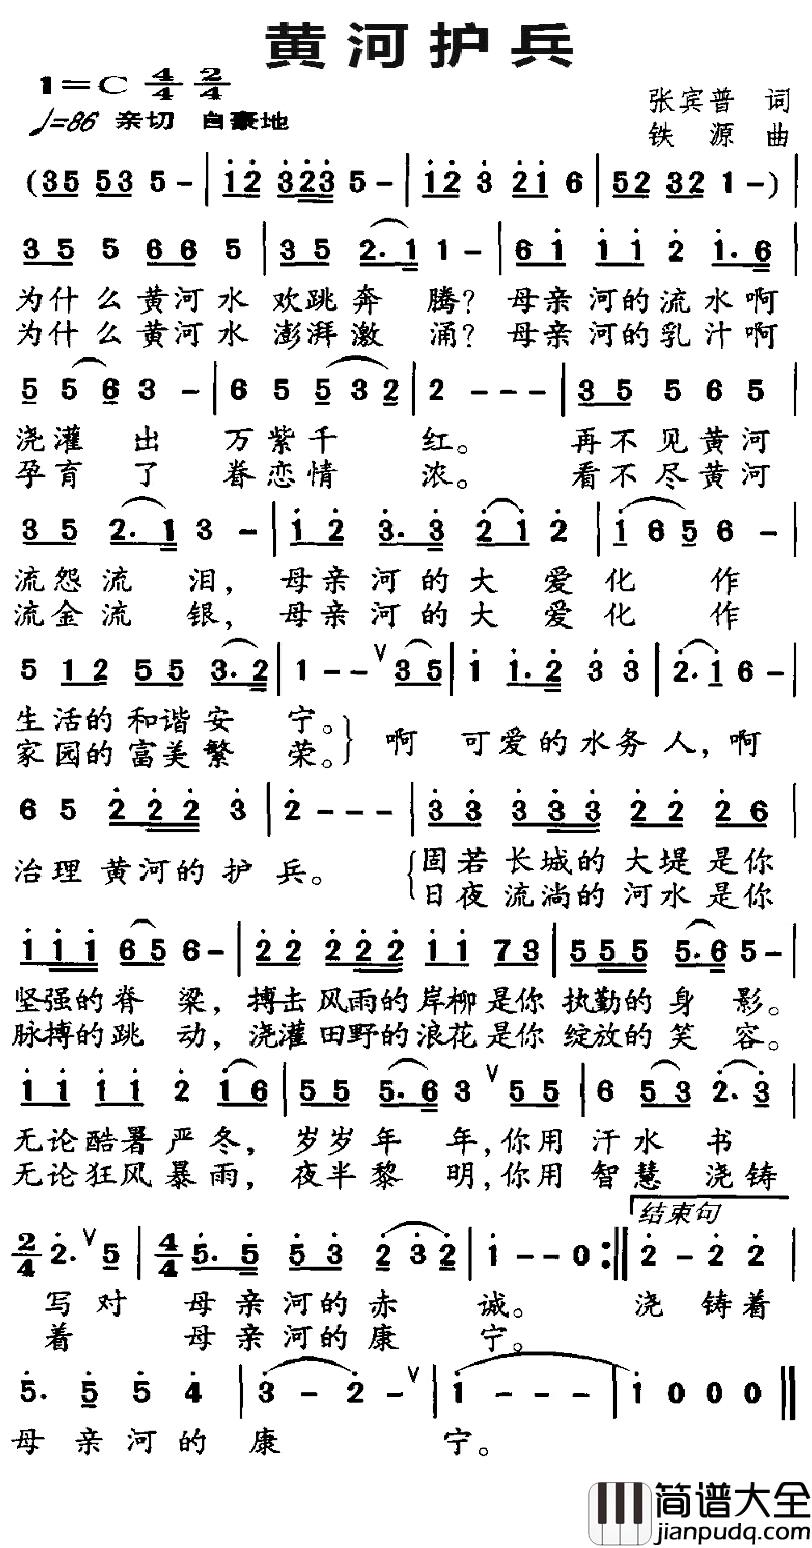 黄河护兵
1=C 4/4 2/4
张宾普 词
♩=86 亲切 自豪地
铁 源 曲
(35 53 5 - | 12 323 5 - | 12 3 21 6 | 52 32 1 - ) |
3 5 5 66 5 | 35 2.1 1 - | 61 11 2 1.6 |
为什么黄河水 欢跳奔 腾? 母亲河的流水啊
为什么黄河水 澎湃激 涌? 母亲河的乳汁啊
5 5 6 3 - | 6 5 532 | 2 - - - | 35 5 6 5 |
浇灌 出 万紫千 红。 再不见黄河
孕育 了 眷恋情 浓。 看不尽黄河
35 2.1 3 - | 12 3.3 21 2 | 165 6 - |
流怨流 泪, 母亲河的大 爱化 作
流金流 银, 母亲河的大 爱化 作
5 12 55 3.2 | 1 - - ∨ 35 | 1 1.2 3 3 | 2.1 6 - |
生活的和谐安 宁。 啊 可爱的水务人,啊
家园的富美繁 荣。
6 5 222 3 | 2 - - - | 33 333 22 26 |
治理 黄河的护 兵。 固若长城的大堤是你
日夜流淌的河水是你
111 65 6 - | 22 222 11 73 | 555 5.6 5 - |
坚强的脊 梁, 搏击风雨的岸柳是你 执勤的身 影。
脉搏的跳 动, 浇灌田野的浪花是你 绽放的笑 容。
11 11 2 16 | 55 5.6 3 ∨ 55 | 6 53 2.3 |
无论酷暑严冬, 岁岁年 年,你用 汗水 书
无论狂风暴雨, 夜半黎 明,你用 智慧 浇铸
结束句
2/4 2. ∨ 5 | 4/4 5.5 53 232 | 1 - - 0 :‖ 2 - 2 2 |
写对 母亲河的赤 诚。 浇 铸着
着 母亲河的康 宁。
5. 5 5 4 | 3 - 2 - ∨ | 1 - - - | 1 0 0 0 ‖
母 亲河的 康 宁。
简谱大全
jianpudq.com